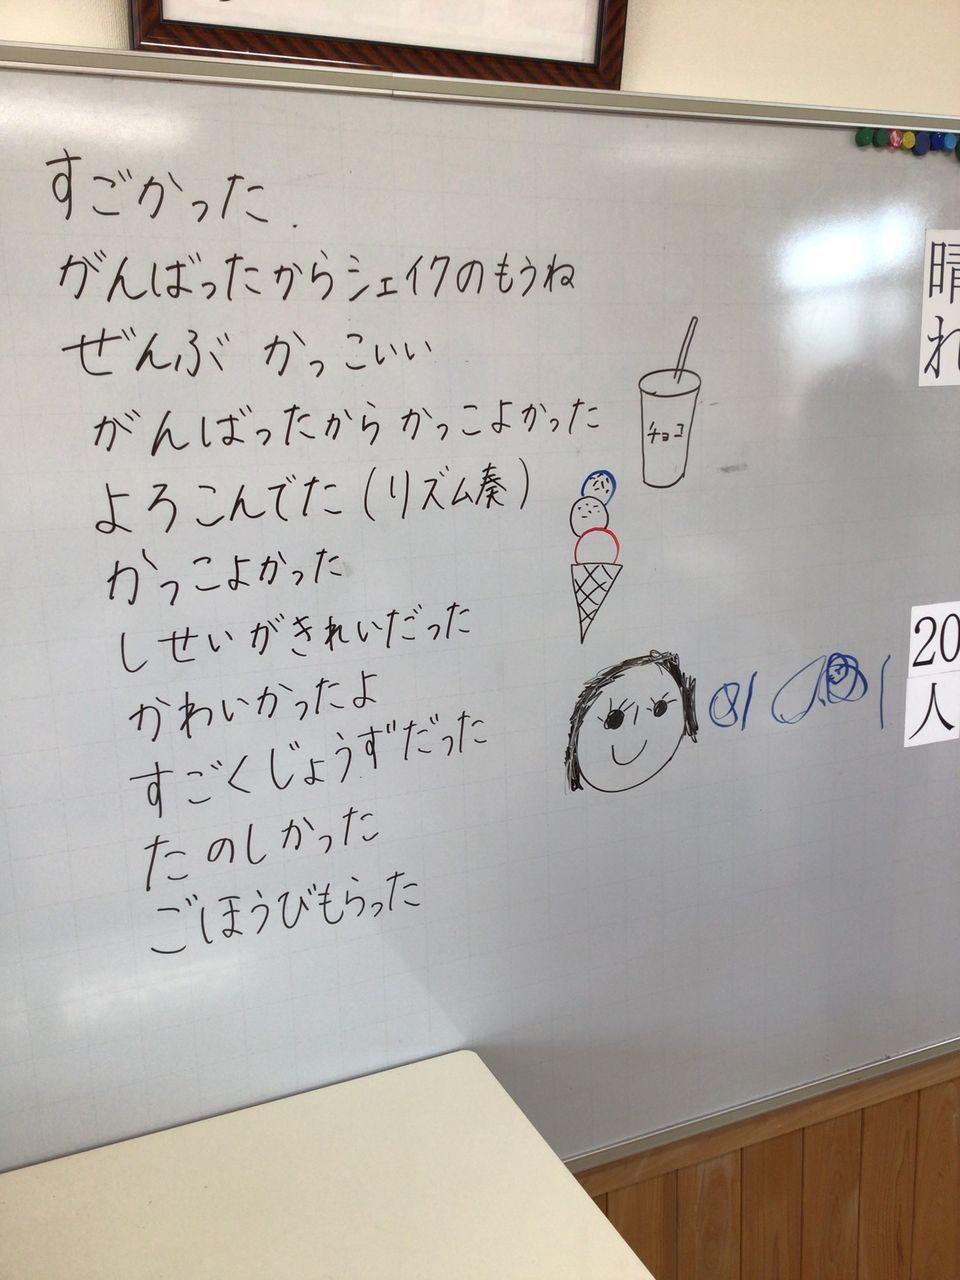 すごかった.
がんばったからシェイクのもうね
ぜんぶ かっこいい
がんばったから かっこよかった
よろこんでた(リズム奏)
かっこよかった
しせいがきれいだった
かわいかったよ
すごくじょうずだった
たのしかった
ごほうびもらった
チョコ
晴れ
20人